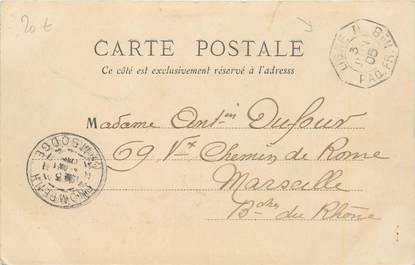 20 t
CARTE POSTALE
Ce côté est exclusivement réservé à l'adresse
LIGNE N
PAQ. FR.
3
05
Madame Antin Dufour
69 Vx Chemin de Rome
Marseille
Bches du Rhône
PNOMPENH
CAMBODGE